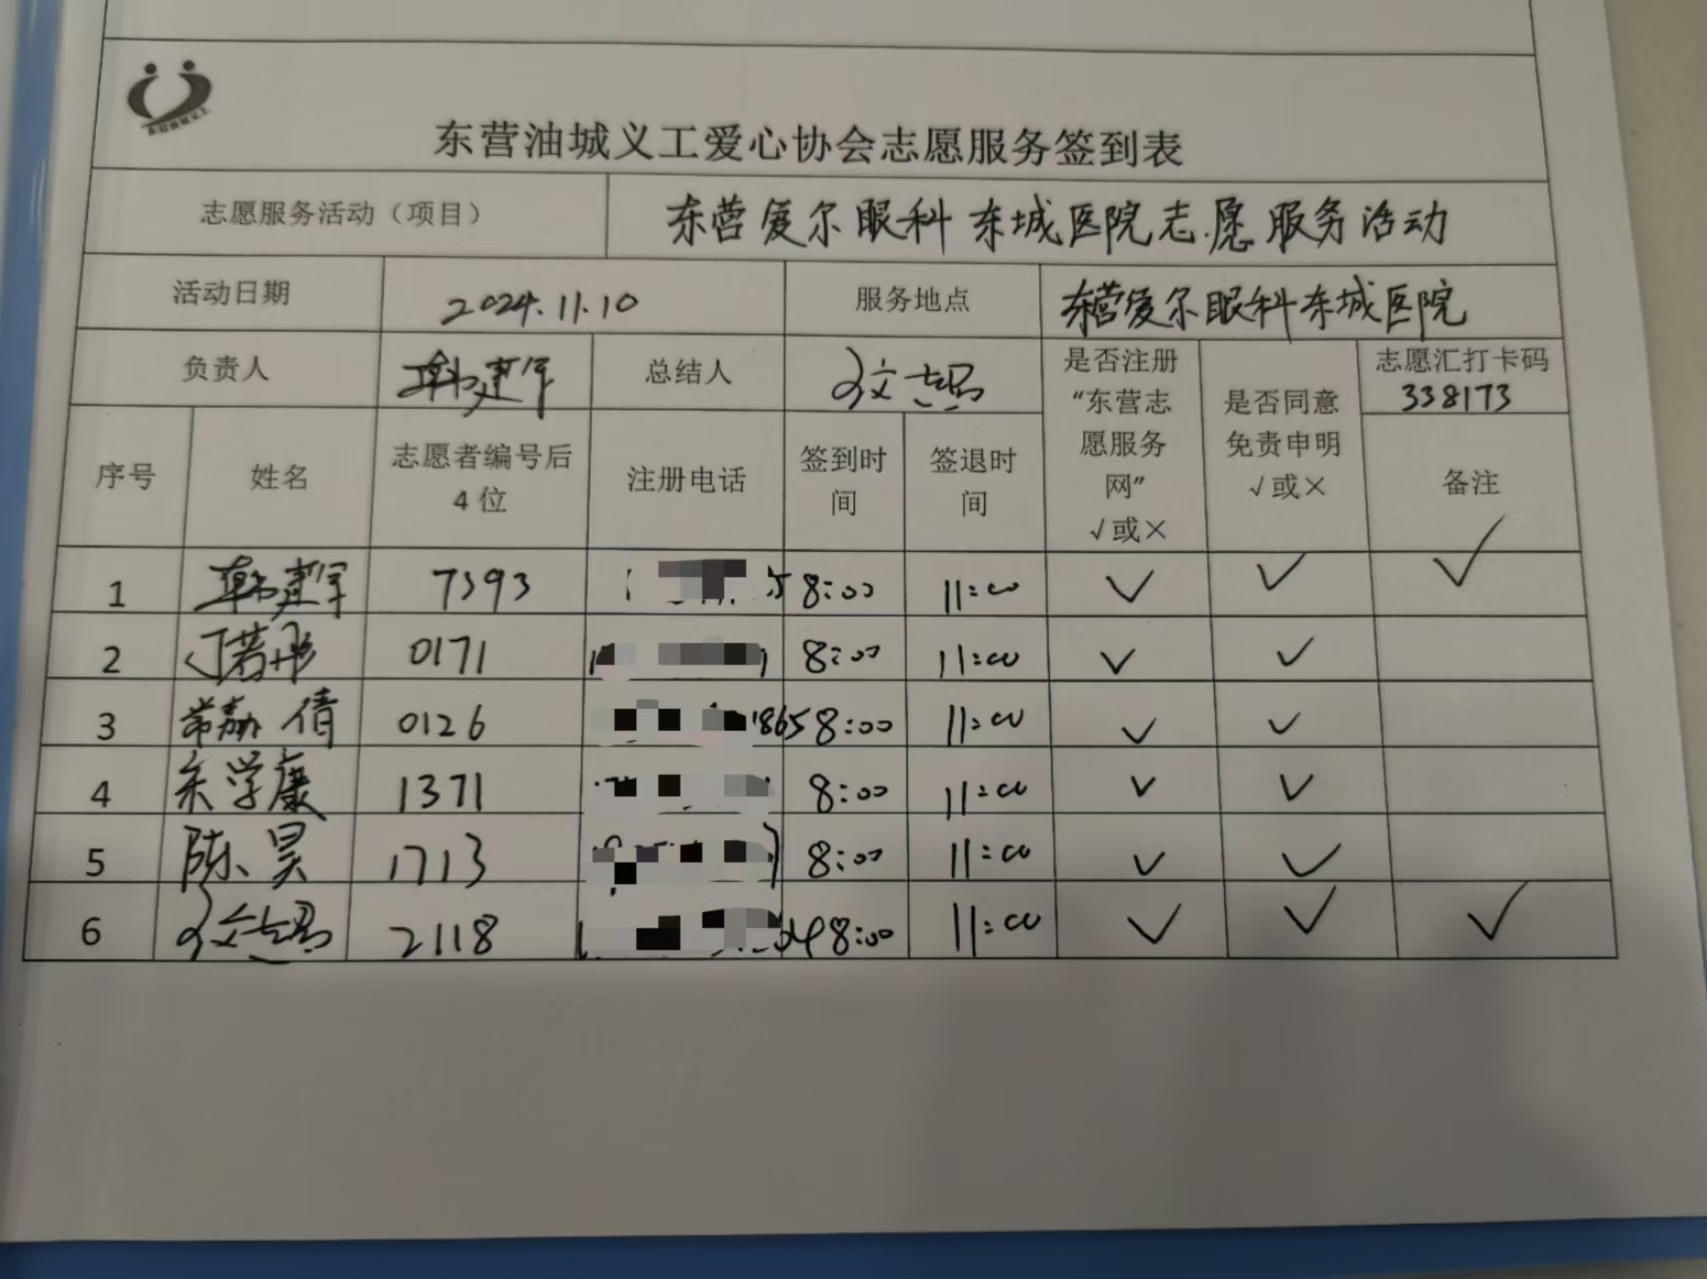 东营油城义工爱心协会志愿服务签到表
志愿服务活动（项目） 东营爱尔眼科东城医院志愿服务活动
活动日期 2024.11.10 服务地点 东营爱尔眼科东城医院
负责人 韩建军 总结人 是否注册“东营志愿服务网”√或× 是否同意免责申明√或× 志愿汇打卡码 338173
序号 姓名 志愿者编号后4位 注册电话 签到时间 签退时间 备注
1 韩建军 7393 8:00 11:00 √ √ √
2 丁若彤 0171 8:00 11:00 √ √
3 常嘉倩 0126 1865 8:00 11:00 √ √
4 朱学康 1371 8:00 11:00 √ √
5 陈昊 1713 8:00 11:00 √ √
6 2118 8:00 11:00 √ √ √